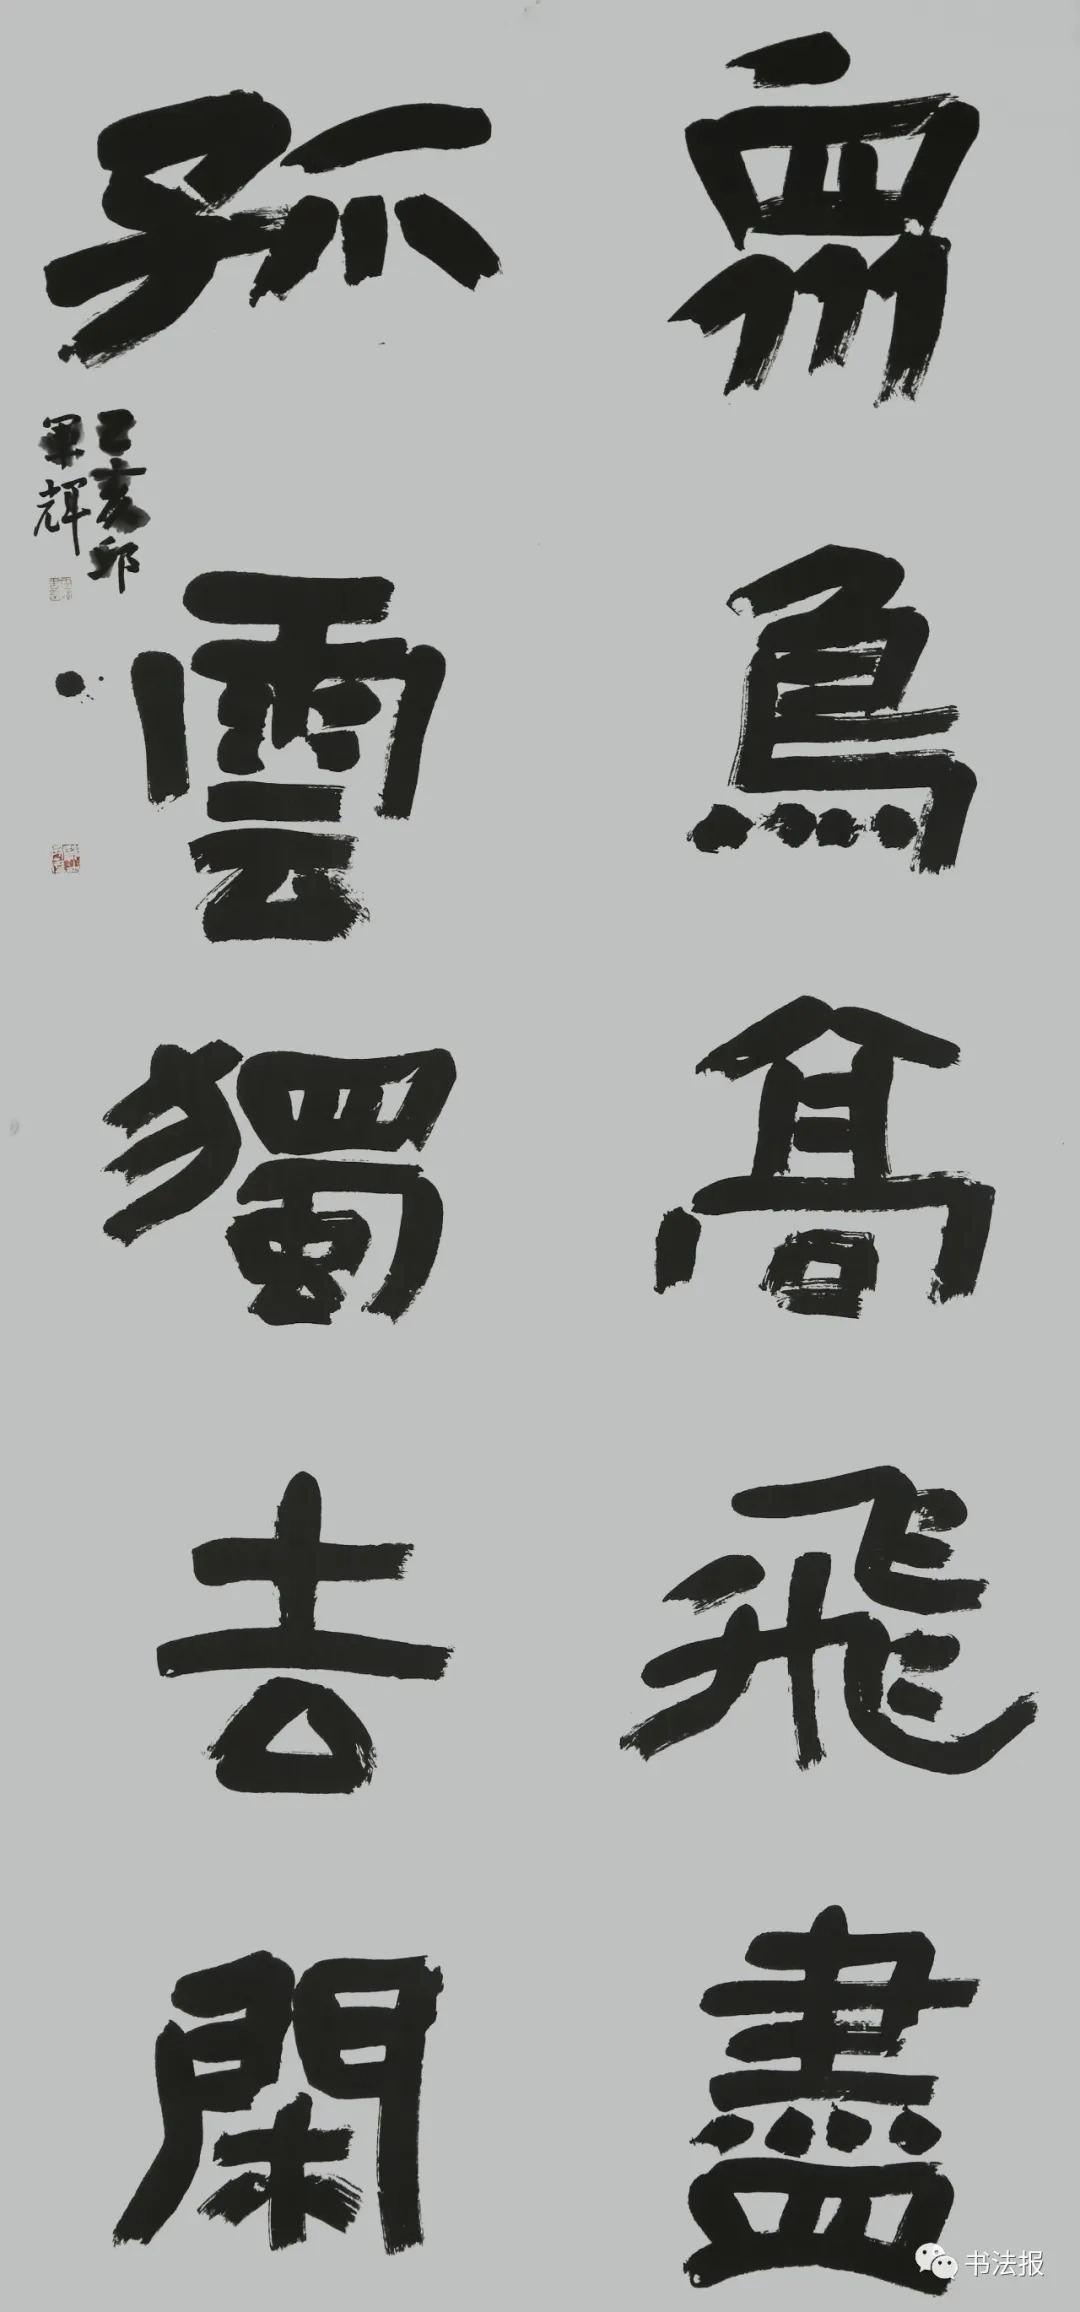 眾鳥高飛盡
孤雲獨去閑
己亥邱
軍輝
书法报